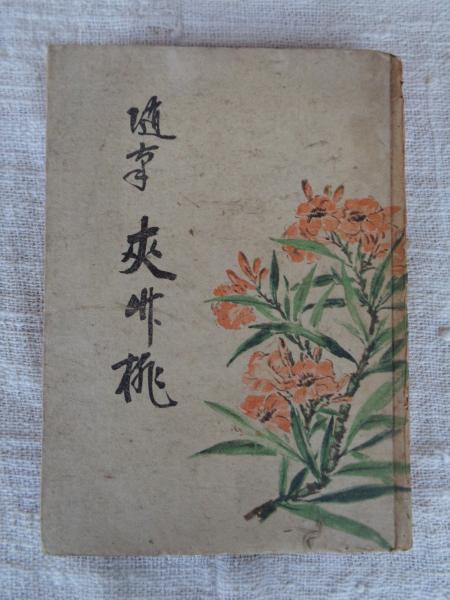 随筆 夾竹桃